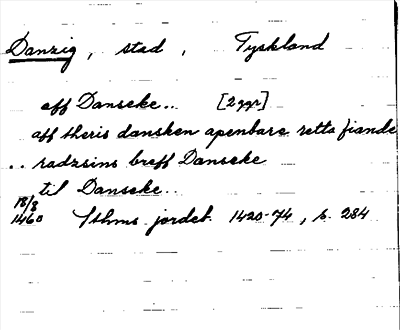 Danzig, stad, Tyskland
aff Danscke.. [2 ggr]
aff theris dansken apenbare retta fiande
.. radzsins breff Danscke
til Danscke..
18/8
1460 Sthms jordeb. 1420-74, s. 284